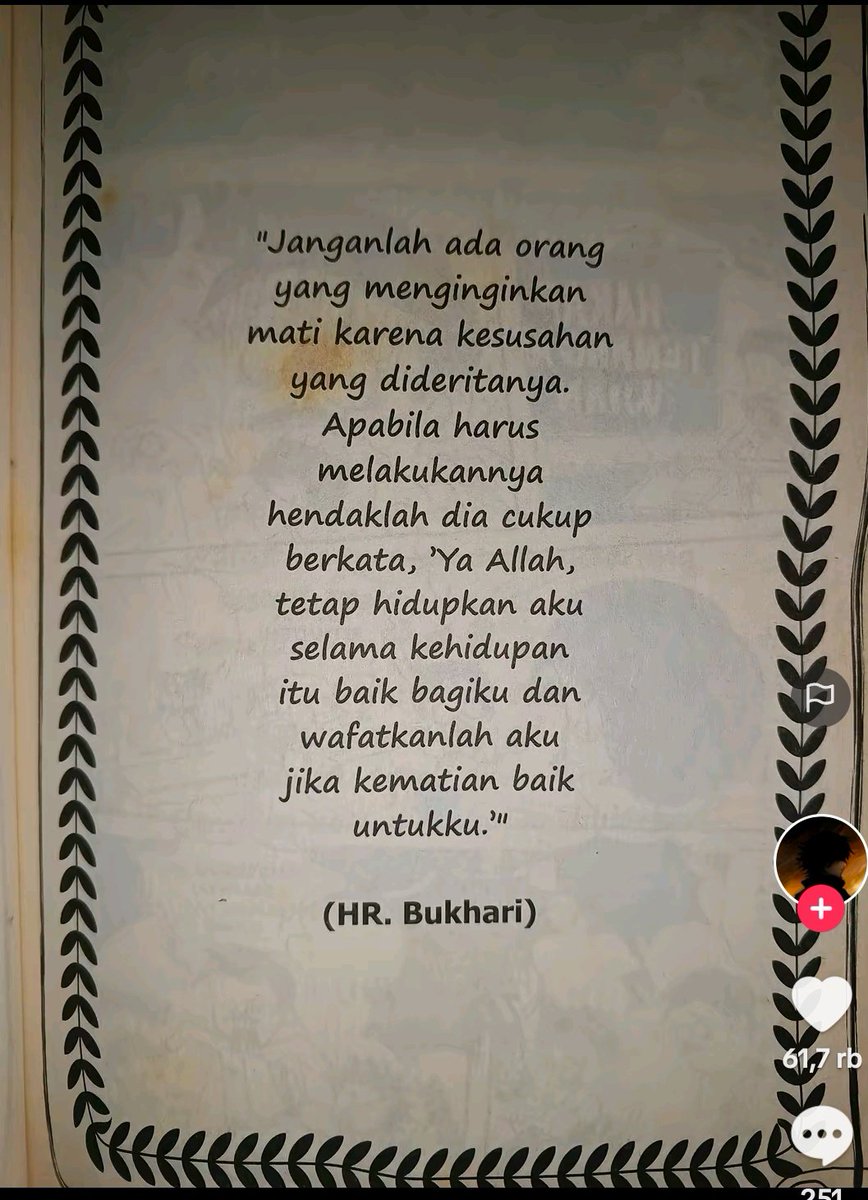 "Janganlah ada orang
yang menginginkan
mati karena kesusahan
yang dideritanya.
Apabila harus
melakukannya
hendaklah dia cukup
berkata, 'Ya Allah,
tetap hidupkan aku
selama kehidupan
itu baik bagiku dan
wafatkanlah aku
jika kematian baik
untukku.'"
(HR. Bukhari)
61,7 rb
251